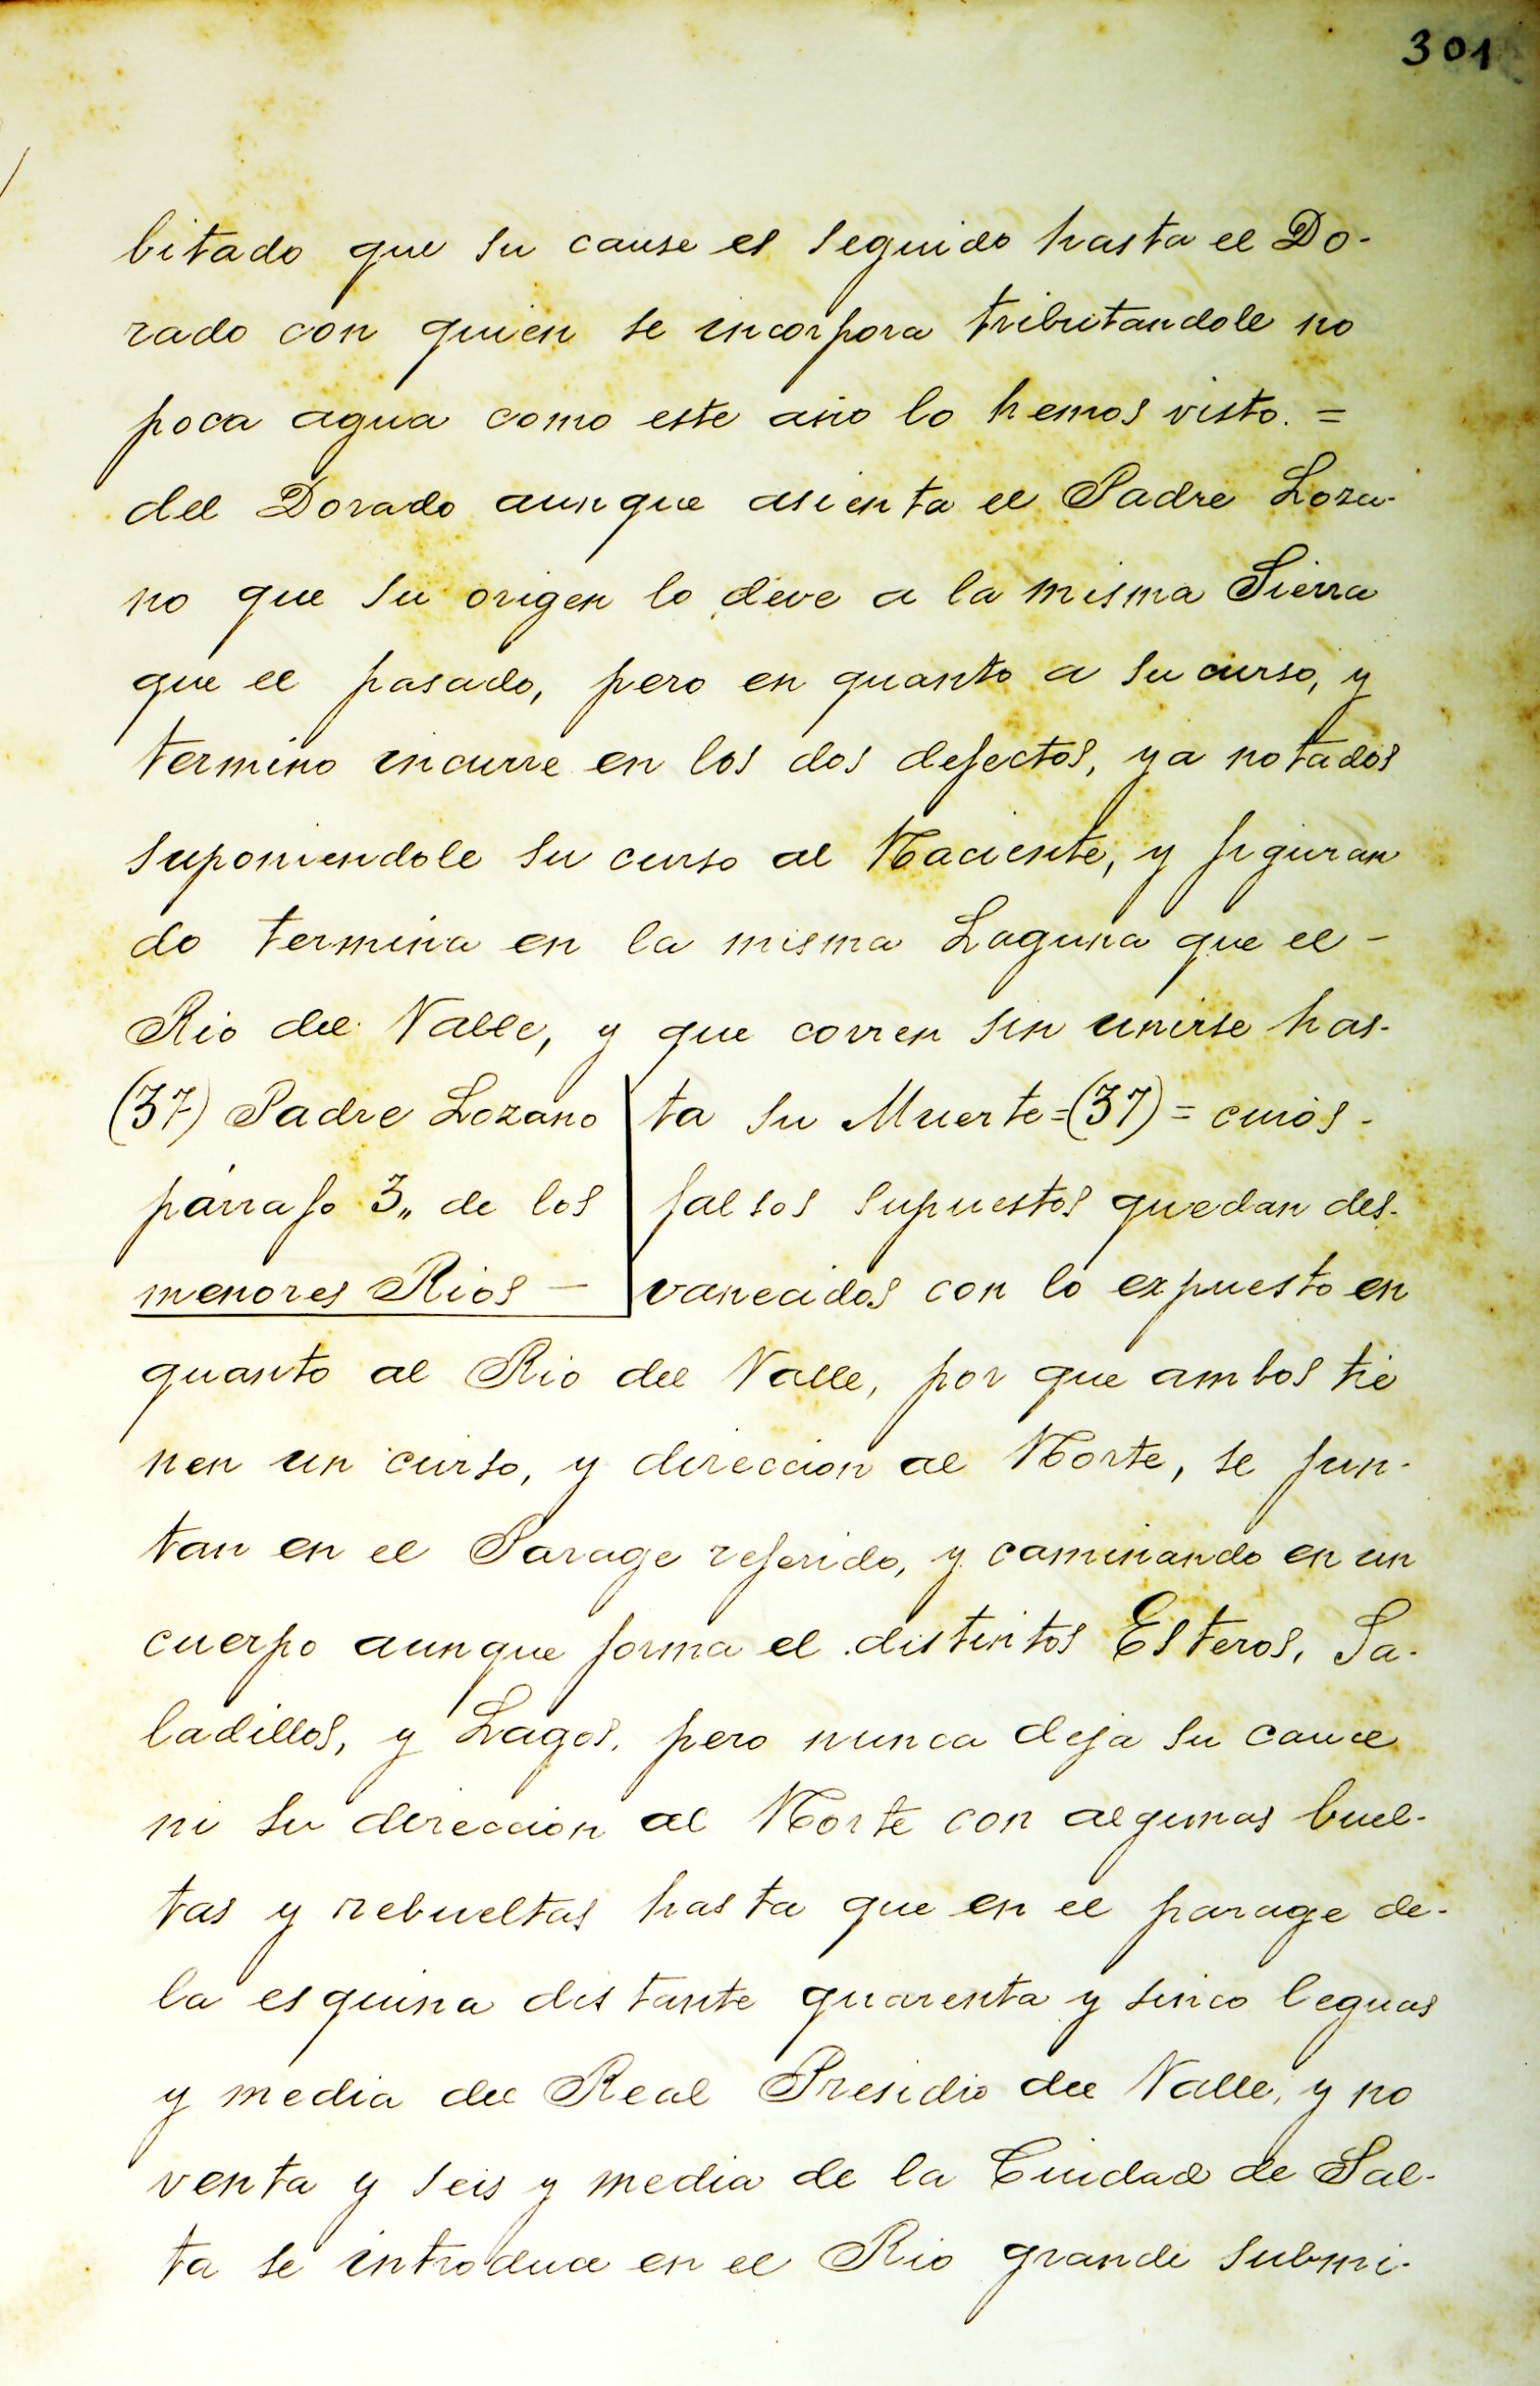 301
bitado que su cause es seguido hasta el Do-
rado con quien se incorpora tributandole no
poca agua como este año lo hemos visto. =
del Dorado aunque asienta el Padre Loza-
no que su origen lo deve a la misma Sierra
que el pasado, pero en quanto a su curso, y
termino incurre en los dos defectos, ya notados
suponiendole su curso al Naciente, y figuran
do termina en la misma Laguna que el -
Rio del Valle, y que corren sin unirse has-
(37) Padre Lozano
párrafo 3,, de los
menores Rios —
ta su Muerte = (37) = cuios -
falsos supuestos quedan des-
vanecidos con lo expuesto en
quanto al Rio del Valle, por que ambos tie
nen un curso, y direccion al Norte, se jun-
tan en el Parage referido, y caminando en un
cuerpo aunque forma el distintos Esteros, Sa-
ladillos, y Lagos, pero nunca deja su cauce
ni su direccion al Norte con algunas buel-
tas y rebueltas hasta que en el parage de-
la esquina distante quarenta y sinco leguas
y media del Real Presidio del Valle, y no
venta y seis y media de la Ciudad de Sal-
ta se introduce en el Rio grande submi-